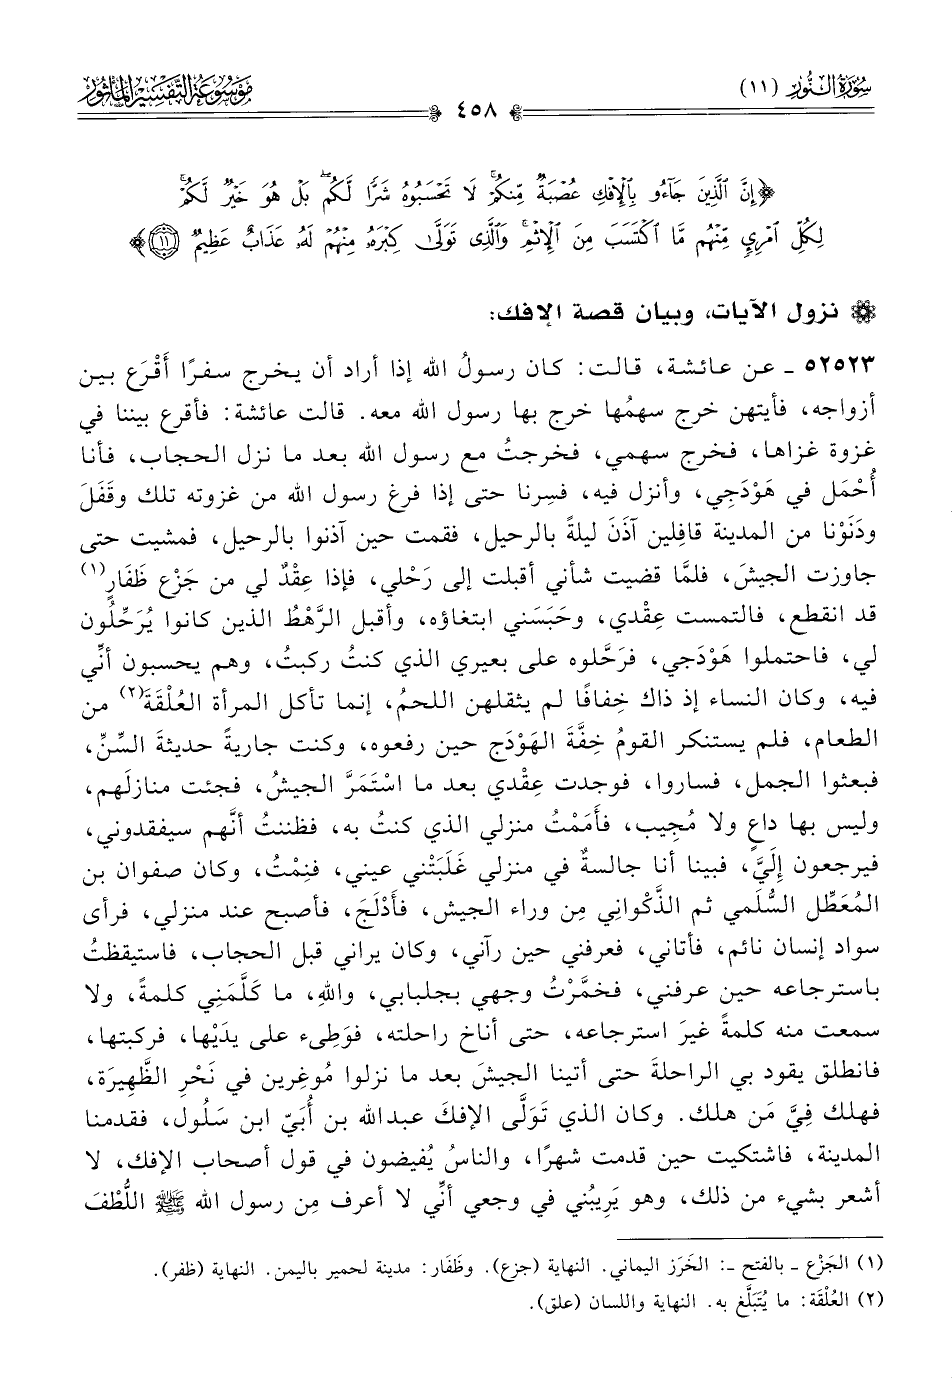 سُورَةُ النُّورِ (١١)
٤٥٨
مَوْسُوعَةُ التَّفْسِيرِ المَأْثُورِ
﴿إِنَّ ٱلَّذِينَ جَآءُو بِٱلْإِفْكِ عُصْبَةٌ مِّنكُمْ ۚ لَا تَحْسَبُوهُ شَرًّا لَّكُم ۖ بَلْ هُوَ خَيْرٌ لَّكُمْ ۚ
لِكُلِّ ٱمْرِئٍ مِّنْهُم مَّا ٱكْتَسَبَ مِنَ ٱلْإِثْمِ ۚ وَٱلَّذِى تَوَلَّىٰ كِبْرَهُۥ مِنْهُمْ لَهُۥ عَذَابٌ عَظِيمٌ ١١﴾
نزول الآيات، وبيان قصة الإفك:
٥٢٥٢٣ ـ عن عائشة، قالت: كان رسولُ الله إذا أراد أن يخرج سفرًا أَقْرَع بين
أزواجه، فأيتهن خرج سهمُها خرج بها رسول الله معه. قالت عائشة: فأقرع بيننا في
غزوة غزاها، فخرج سهمي، فخرجتُ مع رسول الله بعد ما نزل الحجاب، فأنا
أُحْمَل في هَوْدَجِي، وأنزل فيه، فسِرنا حتى إذا فرغ رسول الله من غزوته تلك وقَفَلَ
ودَنَوْنا من المدينة قافِلين آذَنَ ليلةً بالرحيل، فقمت حين آذنوا بالرحيل، فمشيت حتى
جاوزت الجيشَ، فلمَّا قضيت شأني أقبلت إلى رَحْلي، فإذا عِقْدٌ لي من جَزْع ظَفَارِ(١)
قد انقطع، فالتمست عِقْدي، وحَبَسَني ابتغاؤه، وأقبل الرَّهْطُ الذين كانوا يُرَحِّلُون
لي، فاحتملوا هَوْدَجي، فرَحَّلوه على بعيري الذي كنتُ ركبتُ، وهم يحسبون أنِّي
فيه، وكان النساء إذ ذاك خِفافًا لم يثقلهن اللحمُ، إنما تأكل المرأة العُلْقَةَ(٢) من
الطعام، فلم يستنكر القومُ خِفَّةَ الهَوْدَج حين رفعوه، وكنت جاريةً حديثةَ السِّنِّ،
فبعثوا الجمل، فساروا، فوجدت عِقْدي بعد ما اسْتَمَرَّ الجيشُ، فجئت منازلَهم،
وليس بها داعٍ ولا مُجِيب، فأَمَمْتُ منزلي الذي كنتُ به، فظننتُ أنَّهم سيفقدوني،
فيرجعون إِلَيَّ، فبينا أنا جالسةٌ في منزلي غَلَبَتْني عيني، فنِمْتُ، وكان صفوان بن
المُعَطِّل السُّلَمي ثم الذَّكْوانِي مِن وراء الجيش، فأَدْلَجَ، فأصبح عند منزلي، فرأى
سواد إنسان نائم، فأتاني، فعرفني حين رآني، وكان يراني قبل الحجاب، فاستيقظتُ
باسترجاعه حين عرفني، فخمَّرْتُ وجهي بجلبابي، واللهِ، ما كَلَّمَنِي كلمةً، ولا
سمعت منه كلمةً غيرَ استرجاعه، حتى أناخ راحلته، فوَطِىء على يدَيْها، فركبتها،
فانطلق يقود بي الراحلةَ حتى أتينا الجيشَ بعد ما نزلوا مُوغِرين في نَحْرِ الظَّهِيرَة،
فهلك فِيَّ مَن هلك. وكان الذي تَوَلَّى الإفكَ عبدالله بن أُبَيّ ابن سَلُول، فقدمنا
المدينة، فاشتكيت حين قدمت شهرًا، والناسُ يُفيضون في قول أصحاب الإفك، لا
أشعر بشيء من ذلك، وهو يَرِيبُني في وجعي أنِّي لا أعرف مِن رسول الله ﷺ اللُّطْفَ
(١) الجَزْع ـ بالفتح ـ: الخَرَز اليماني. النهاية (جزع). وظَفَار: مدينة لحمير باليمن. النهاية (ظفر).
(٢) العُلْقَة: ما يُتَبَلَّغ به. النهاية واللسان (علق).